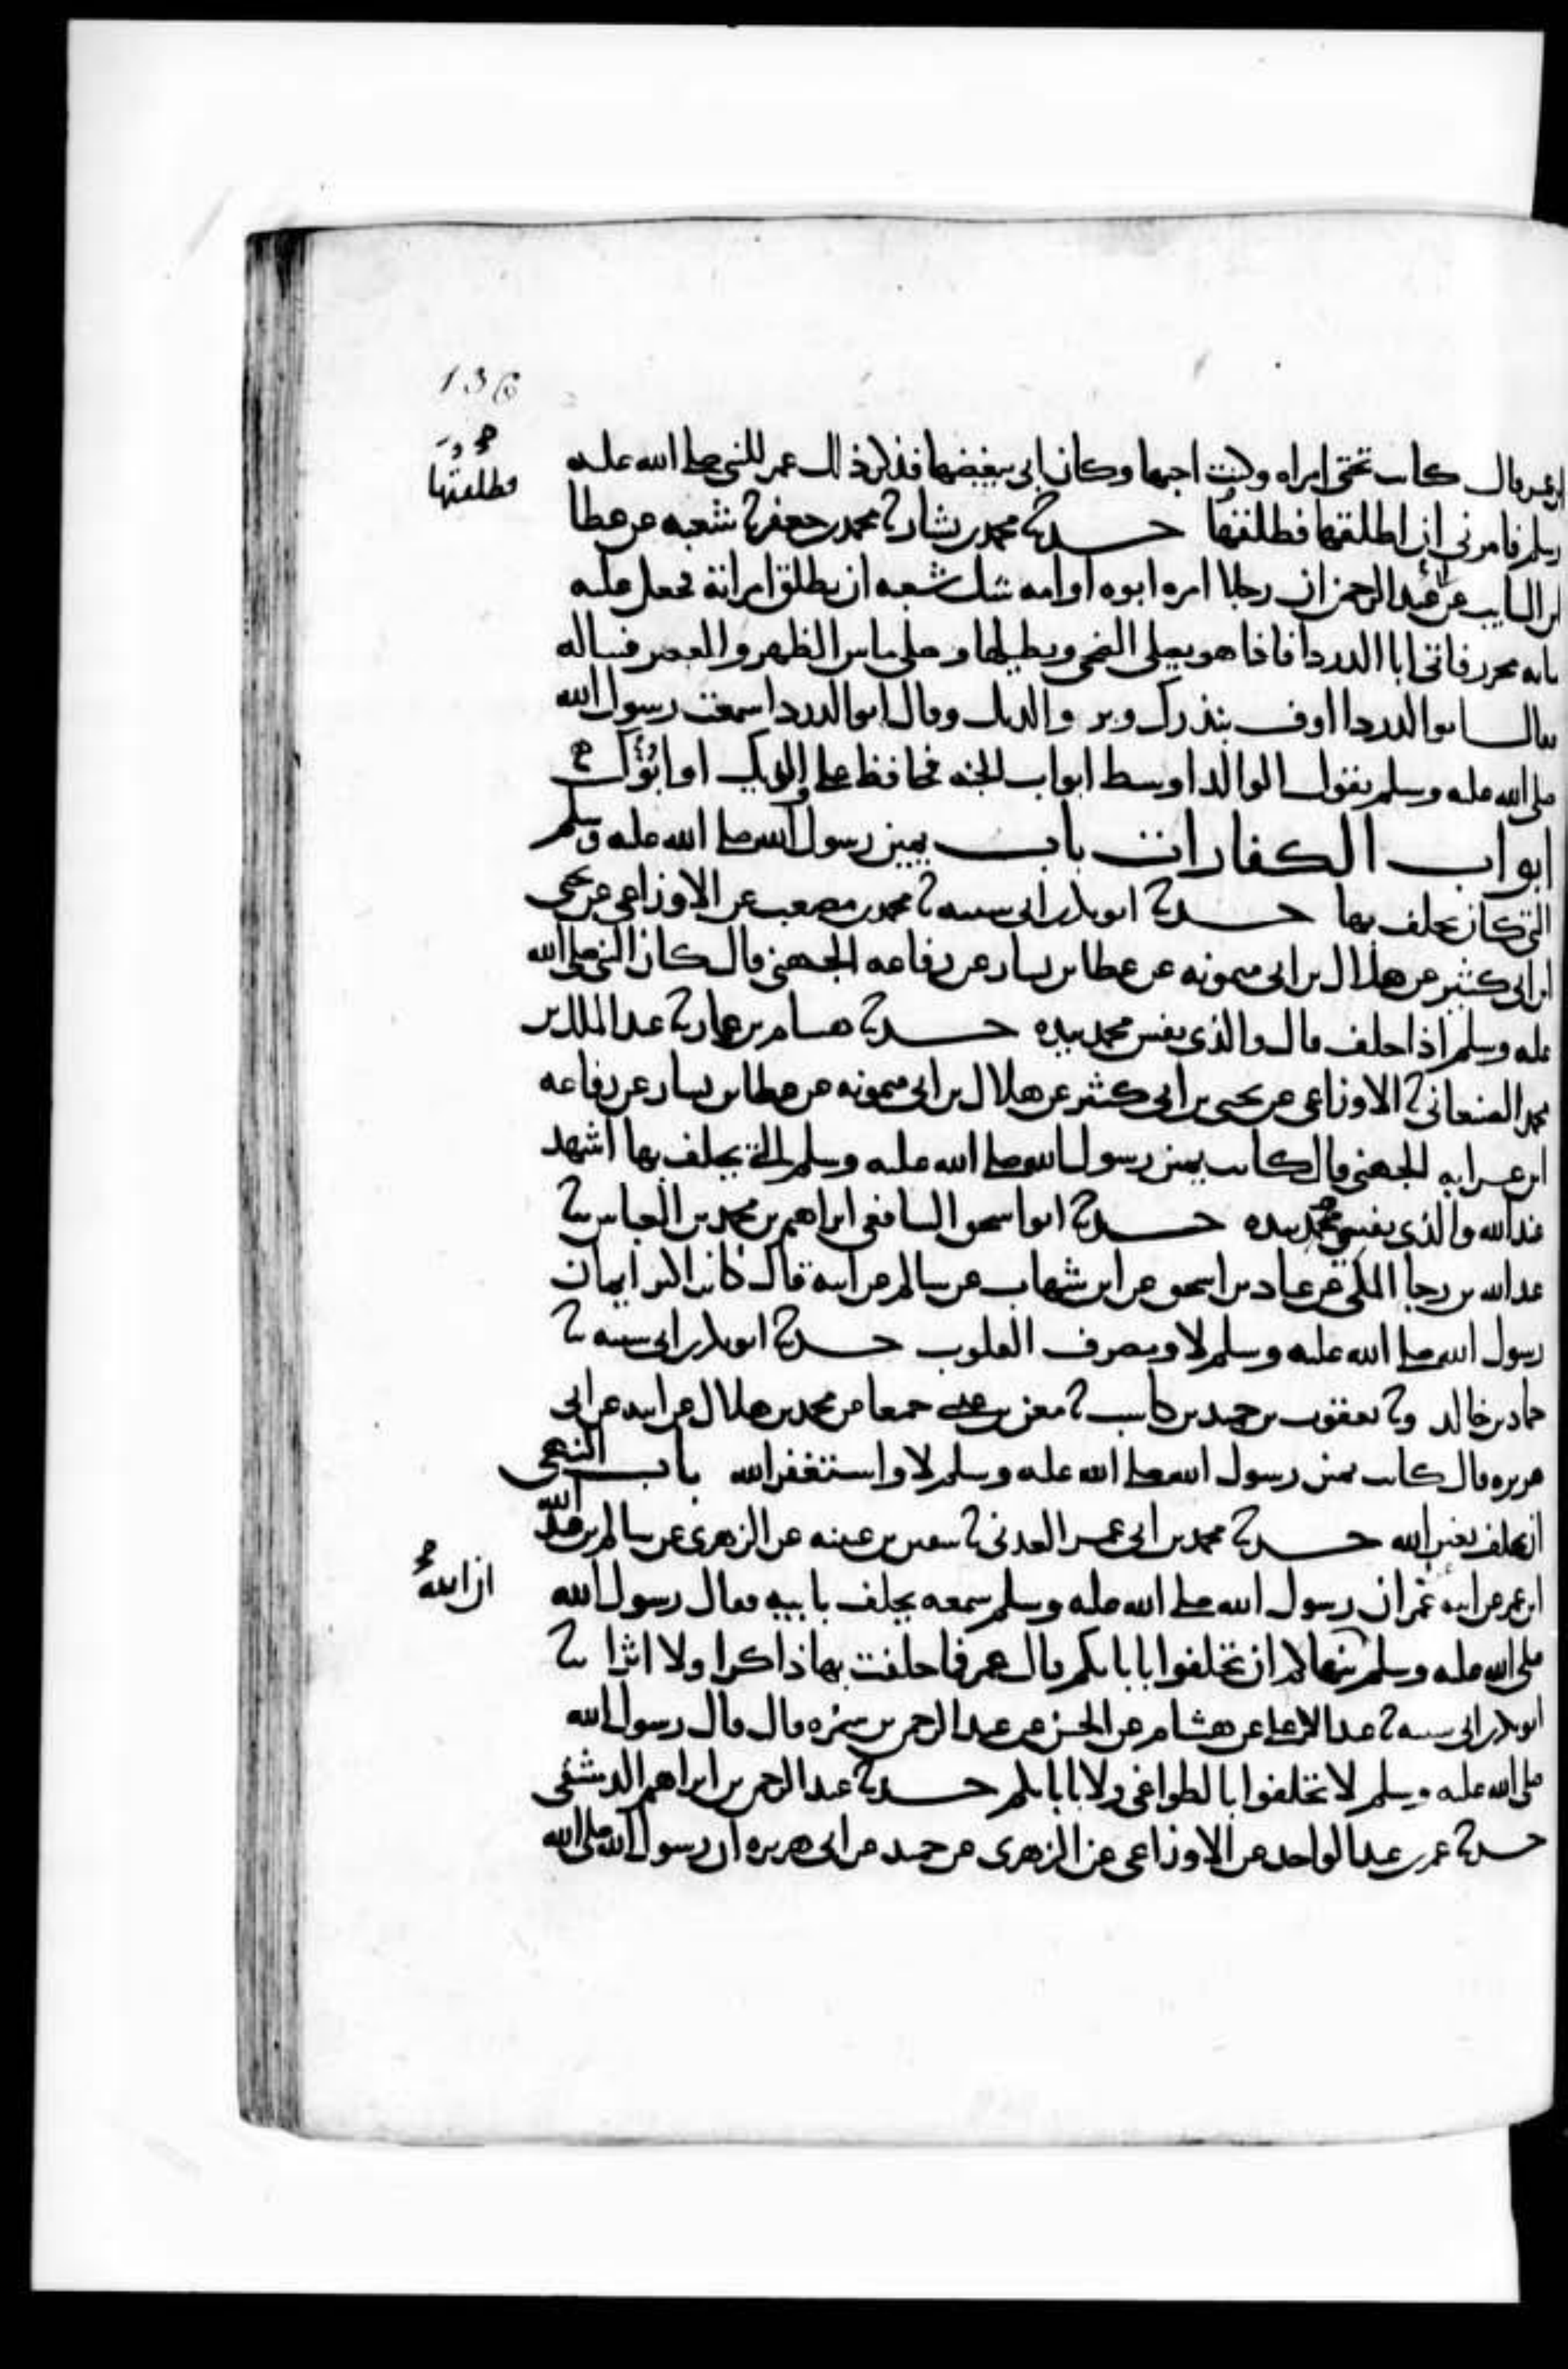 136
ابن عمر قال كانت تحتي امراه وكنت احبها وكان ابي يبغضها فذكر ذلك عمر للنبي صلى الله عليه
فطلقتها
وسلم فامرني ان اطلقها فطلقتها حدثنا محمد بن بشار ثنا محمد بن جعفر ثنا شعبه عن عطا
بن السايب عن ابي عبد الرحمن ان رجلا امره ابوه او امه شك شعبه ان يطلق امراته فجعل عليه
مايه محرر فاتى ابا الدردا فاذا هو يصلي الضحى ويطيلها وصلى مابين الظهر والعصر فساله
فقال ابو الدردا اوف بنذرك وبر والديك وقال ابو الدردا سمعت رسول الله
صلى الله عليه وسلم يقول الوالد اوسط ابواب الجنه فحافظ على والديك او اترك
ابواب الكفارات باب يمين رسول الله صلى الله عليه وسلم
التي كان يحلف بها حدثنا ابو بكر بن ابي شيبه ثنا محمد بن مصعب عن الاوزاعي عن يحيى
ابن ابي كثير عن هلال بن ابي ميمونه عن عطا بن يسار عن رفاعه الجهني قال كان النبي صلى الله
عليه وسلم اذا حلف قال والذي نفس محمد بيده حدثنا هشام بن عمار ثنا عبد الملك بن
محمد الصنعاني ثنا الاوزاعي عن يحيى بن ابي كثير عن هلال بن ابي ميمونه عن عطا بن يسار عن رفاعه
ابن عرابه الجهني قال كانت يمين رسول الله صلى الله عليه وسلم التي يحلف بها اشهد
عند الله والذي نفس محمد بيده حدثنا ابو اسحق الشافعي ابراهيم بن محمد بن العباس ثنا
عبد الله بن رجا المكي عن عباد بن اسحق عن ابن شهاب عن سالم عن ابيه قال كانت اكثر ايمان
رسول الله صلى الله عليه وسلم لا ومصرف القلوب حدثنا ابو بكر بن ابي شيبه ثنا
حماد بن خالد وثنا يعقوب بن حميد بن كاسب ثنا معن بن عيسى جميعا عن محمد بن هلال عن ابيه عن ابي
هريره قال كانت يمين رسول الله صلى الله عليه وسلم لا واستغفر الله باب النهي
ان يحلف بغير الله حدثنا محمد بن ابي عمر العدني ثنا سفين بن عيينه عن الزهري عن سالم بن عبد الله
ابن عمر عن ابيه عن عمر ان رسول الله صلى الله عليه وسلم سمعه يحلف بابيه فقال رسول الله
ان الله
صلى الله عليه وسلم ينهاكم ان تحلفوا بابايكم قال عمر فما حلفت بها ذاكرا ولا اثرا ثنا
ابو بكر بن ابي شيبه ثنا عبد الاعلى عن هشام عن الحسن عن عبد الرحمن بن سمره قال قال رسول الله
صلى الله عليه وسلم لا تحلفوا بالطواغي ولا بابايكم حدثنا عبد الرحمن بن ابراهيم الدمشقي
حدثنا عمر بن عبد الواحد عن الاوزاعي عن الزهري عن حميد عن ابي هريره ان رسول الله صلى الله